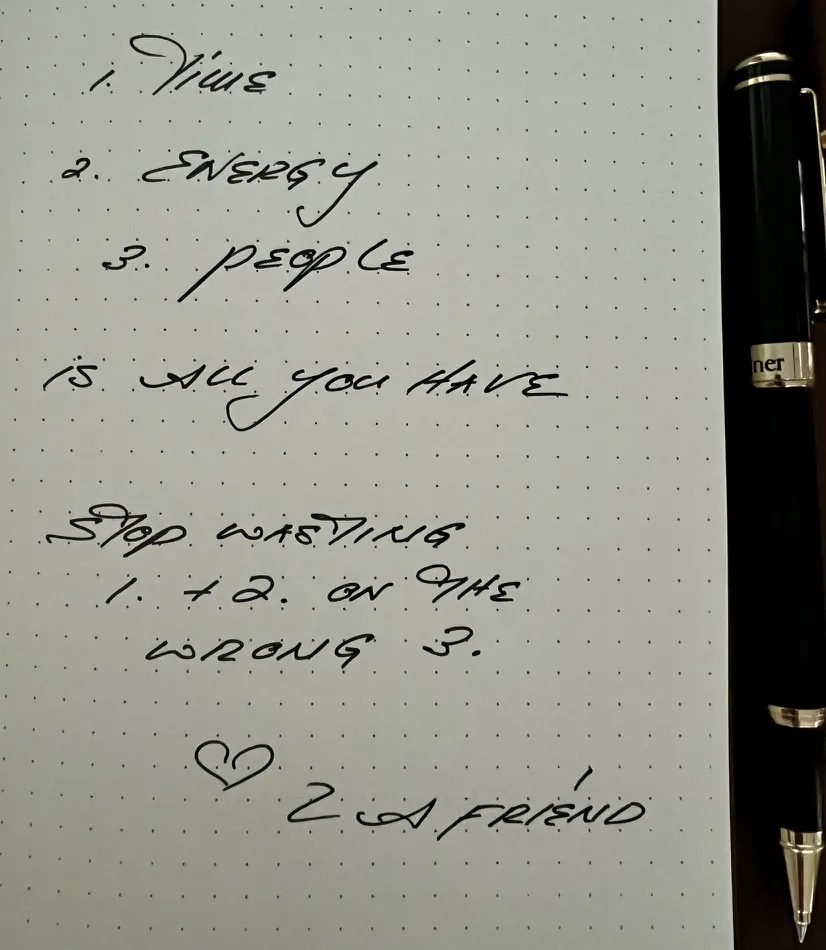 1. Time
2. ENERGY
3. PEOPLE
is All you HAVE
STOP WASTING
1. + 2. ON THE
WRONG 3.
♡ 2 A FRIEND
ner